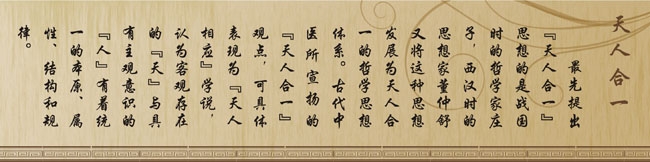 天人合一
最先提出
『天人合一』
思想的是战国
时的哲学家庄
子，西汉时的
思想家董仲舒
又将这种思想
发展为天人合
一的哲学思想
体系。古代中
医所宣扬的
『天人合一』
观点，可具体
表现为『天人
相应』学说，
认为客观存在
的『天』与具
有主观意识的
『人』有着统
一的本原、属
性、结构和规
律。